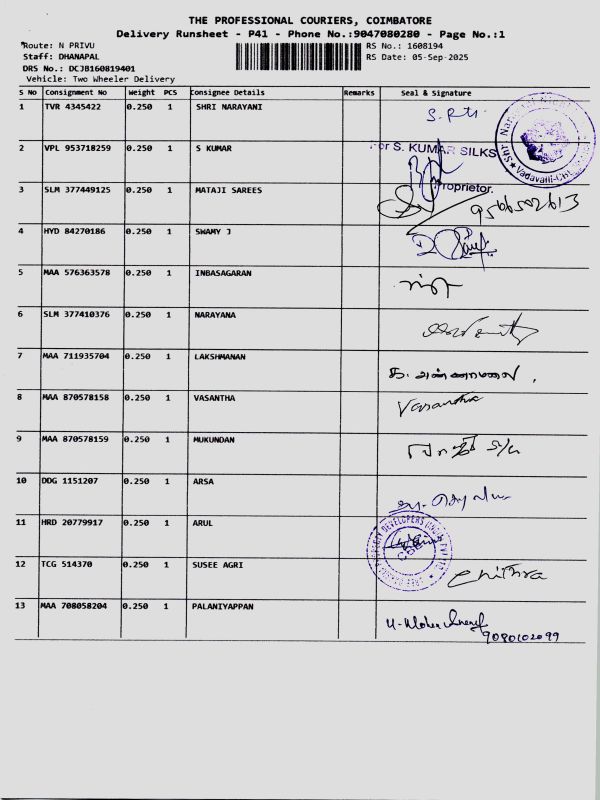 THE PROFESSIONAL COURIERS, COIMBATORE
Delivery Runsheet - P41 - Phone No.:9047080280 - Page No.:1
Route: N PRIVU RS No.: 1608194
Staff: DHANAPAL RS Date: 05-Sep-2025
DRS No.: DCJB160819401
Vehicle: Two Wheeler Delivery
S No Consignment No Weight PCS Consignee Details Remarks Seal & Signature
1 TVR 4345422 0.250 1 SHRI NARAYANI
2 VPL 953718259 0.250 1 S KUMAR For S. KUMAR SILKS
Proprietor.
3 SLM 377449125 0.250 1 MATAJI SAREES 9566502613
4 HYD 84270186 0.250 1 SWAMY J
5 MAA 576363578 0.250 1 INBASAGARAN
6 SLM 377410376 0.250 1 NARAYANA
7 MAA 711935704 0.250 1 LAKSHMANAN
8 MAA 870578158 0.250 1 VASANTHA Vasantha
9 MAA 870578159 0.250 1 MUKUNDAN
10 DDG 1151207 0.250 1 ARSA
11 HRD 20779917 0.250 1 ARUL
12 TCG 514370 0.250 1 SUSEE AGRI Chithra
13 MAA 708058204 0.250 1 PALANIYAPPAN
9080102099